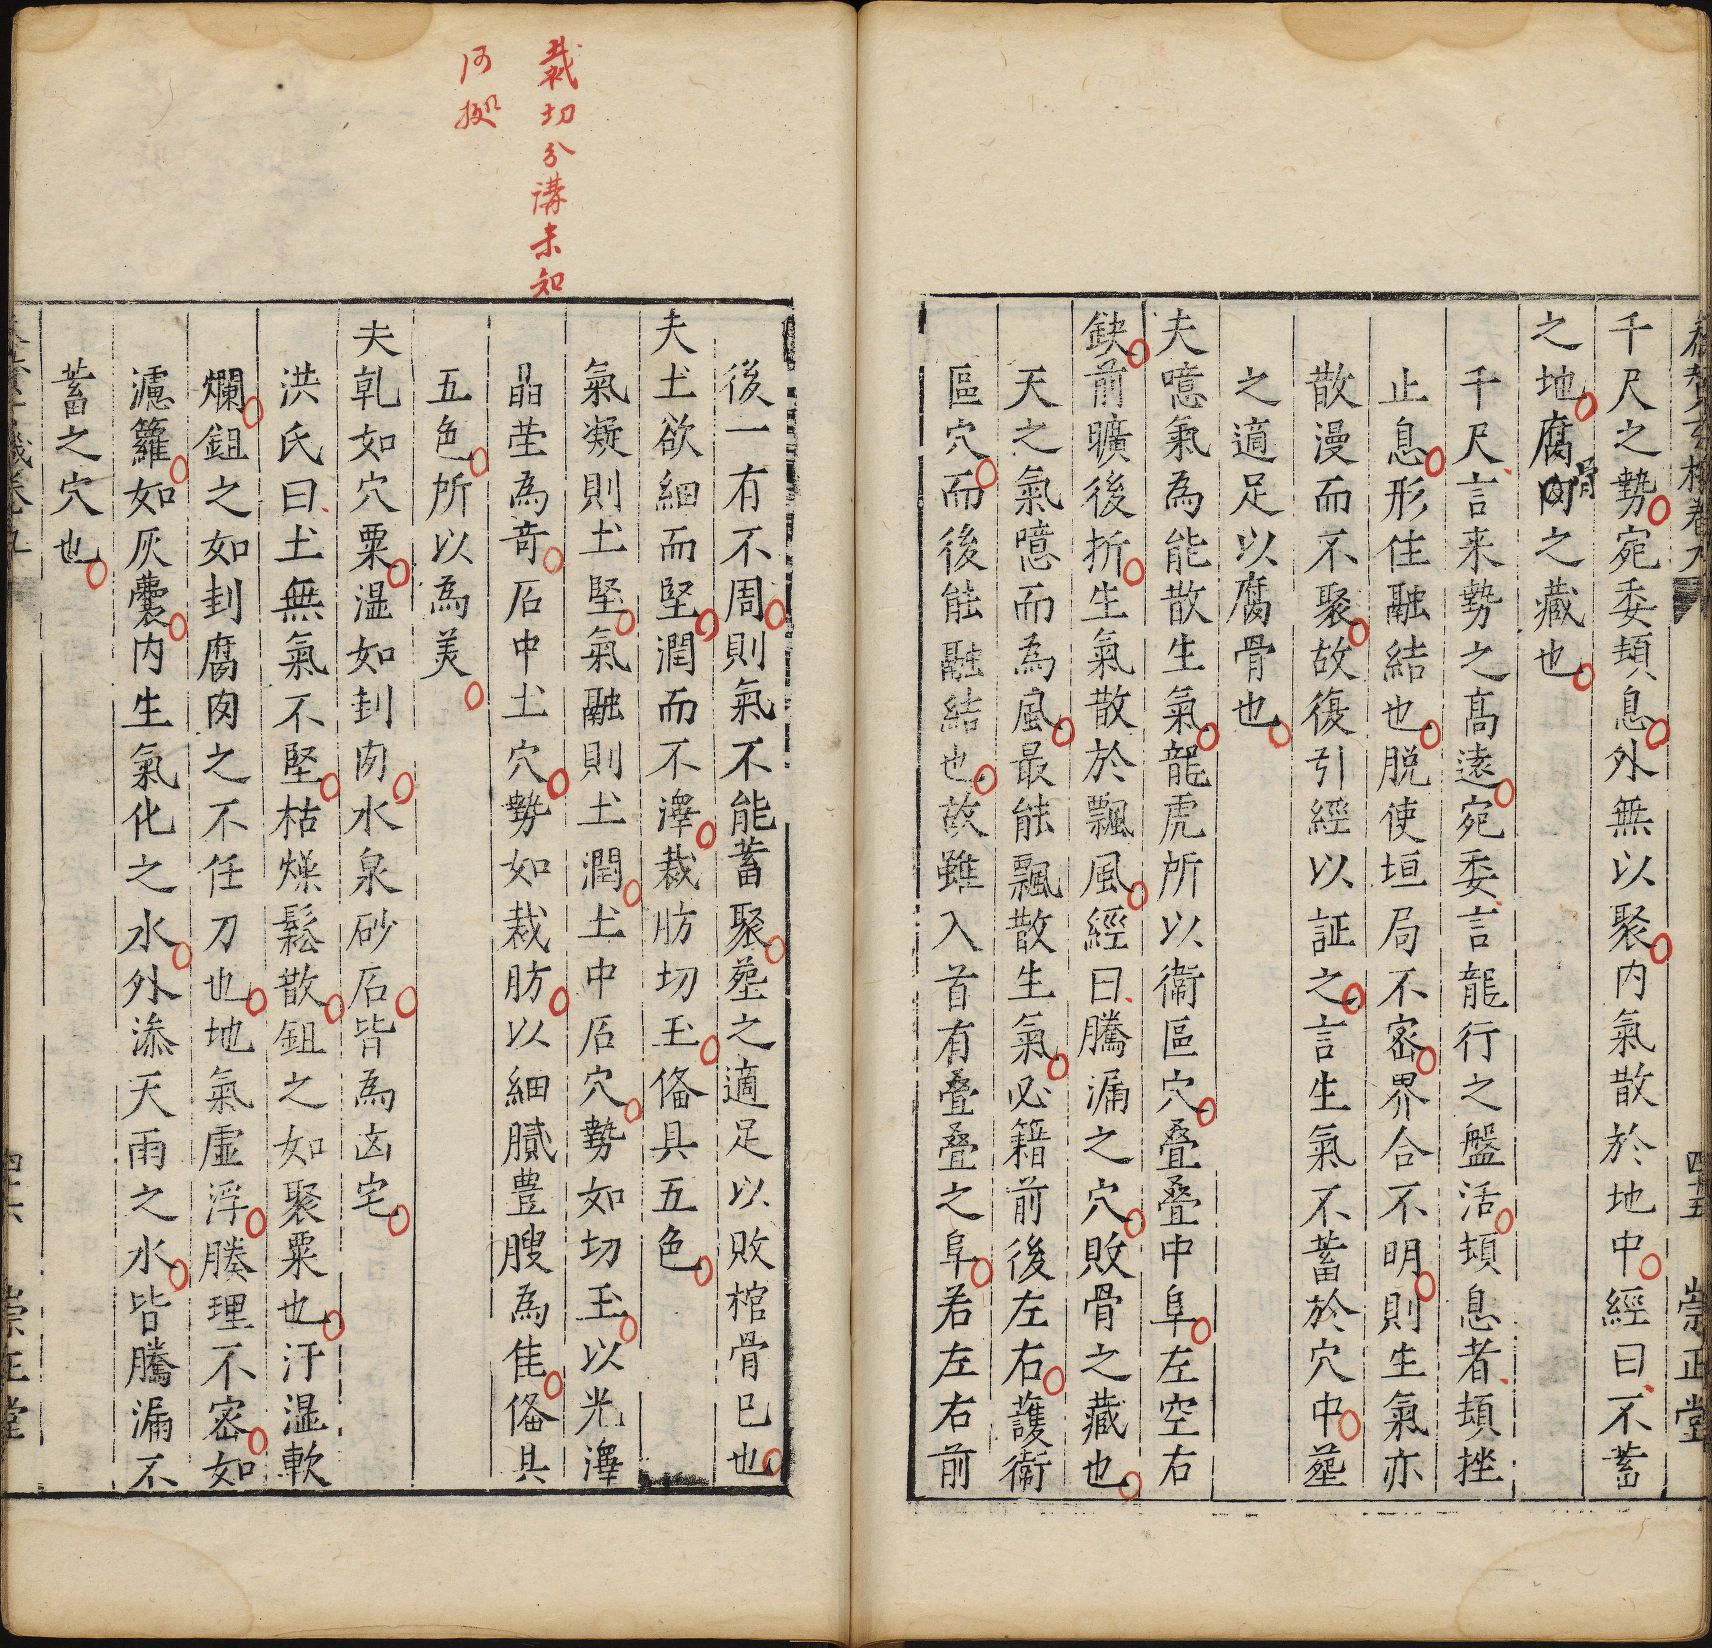 千尺之勢宛委頓息外無以聚内氣散於地中經曰不蓄
之地腐肉之藏也
骨
千尺言来勢之髙遠宛委言龍行之盤活頓息者頓挫
止息形住融結也脱使垣局不密界合不明則生氣亦
散漫而不聚故復引經以証之言生氣不蓄於穴中葬
之適足以腐骨也
夫噫氣為能散生氣龍虎所以衛區穴叠叠中阜左空右
缺前曠後折生氣散於飄風經曰騰漏之穴敗骨之藏也
天之氣噫而為風最能飄散生氣必籍前後左右護衛
區穴而後能融結也故雖入首有叠叠之阜若左右前
四十五
崇正堂
栽切分講未知
何授
後一有不周則氣不能蓄聚葬之適足以敗棺骨巳也
夫土欲細而堅潤而不澤裁肪切玉俻具五色
氣凝則土堅氣融則土潤土中石穴勢如切玉以光澤
晶莹為奇石中土穴勢如裁肪以細膩豊膄為佳俻具
五色所以為美
夫乹如穴粟湿如刲肉水泉砂石皆為凶宅
洪氏曰土無氣不堅枯燥鬆散鉏之如聚粟也汙湿軟
爛鉏之如刲腐肉之不任刀也地氣虚浮腠理不密如
濾籮如灰囊内生氣化之水外添天雨之水皆騰漏不
蓄之穴也
四十六
崇正堂